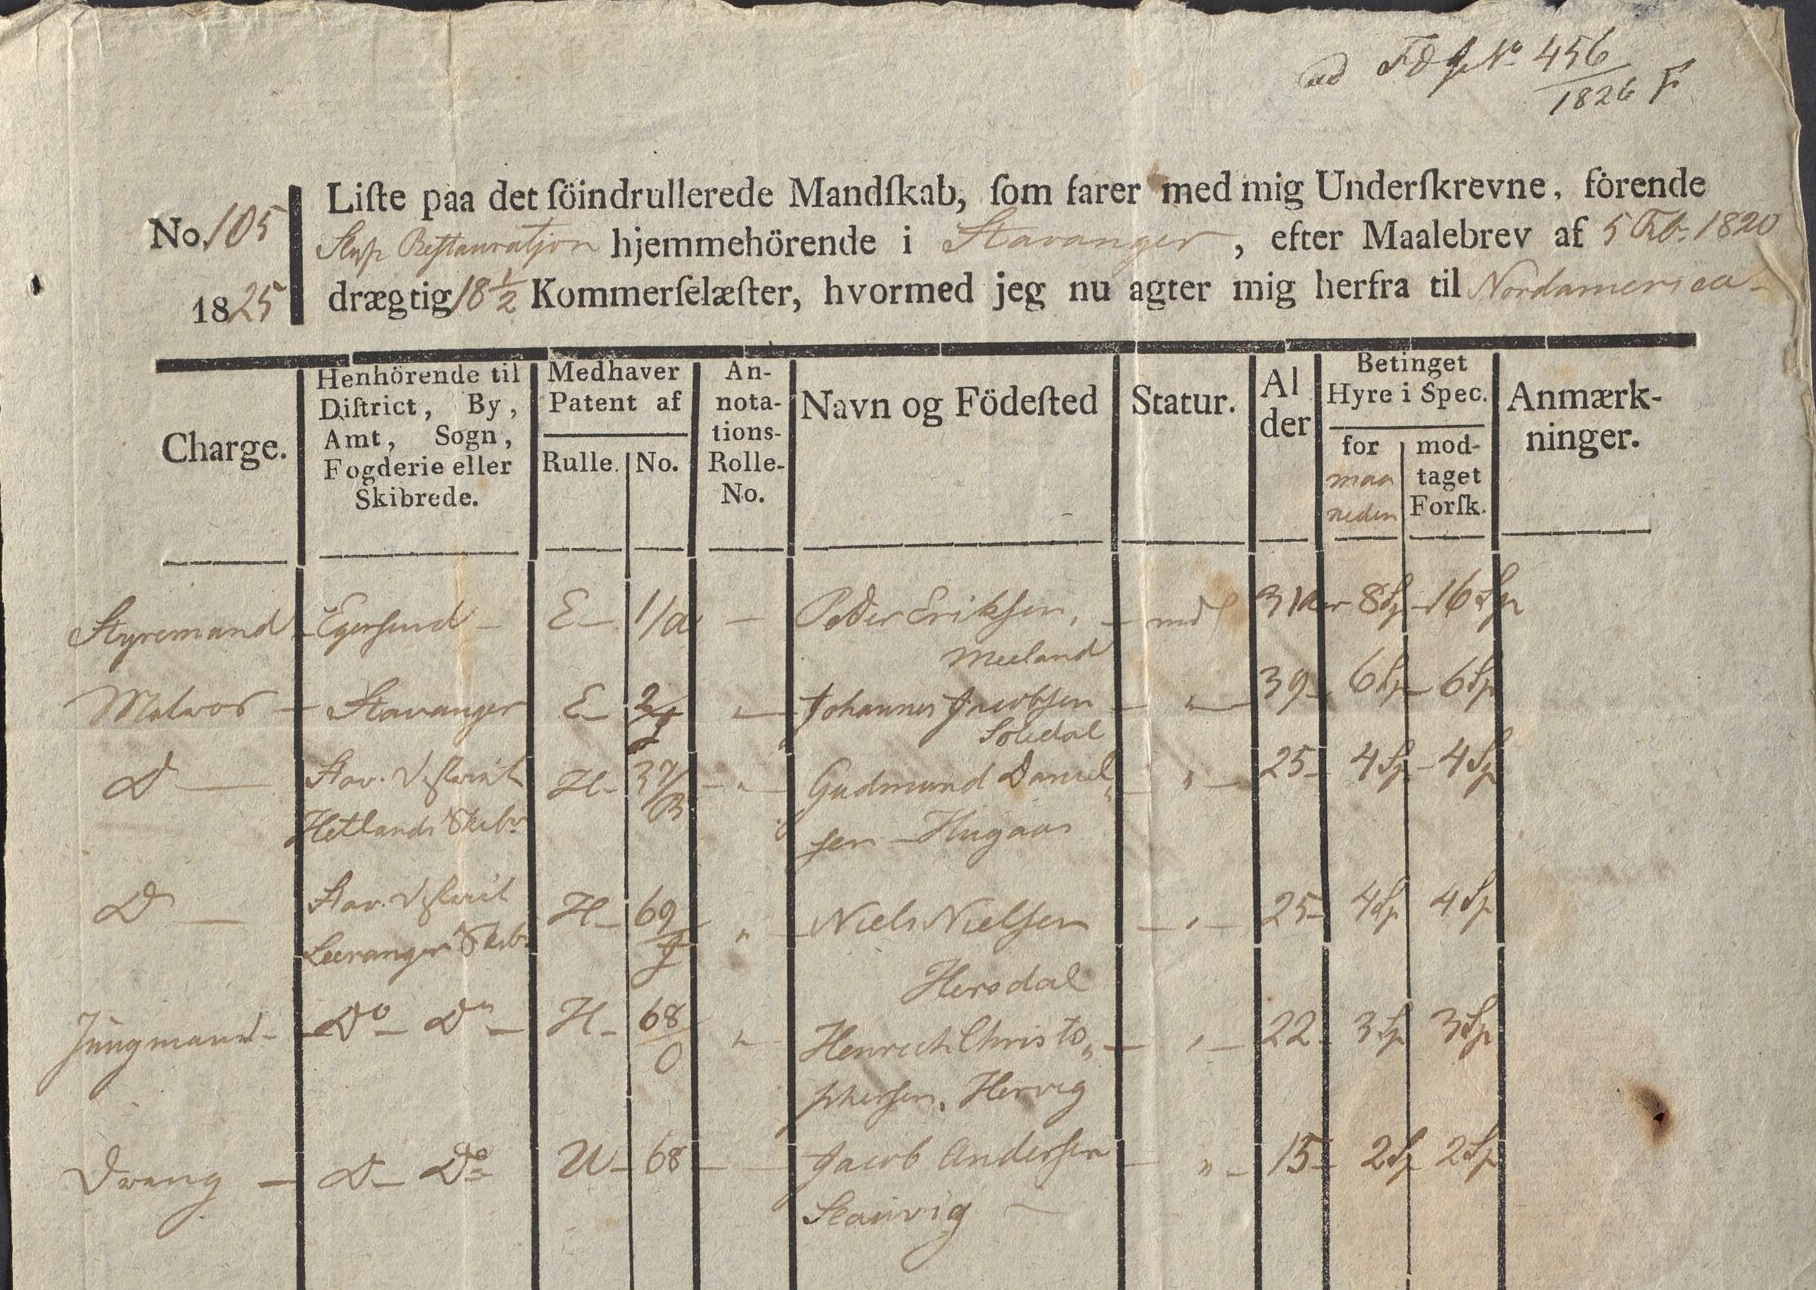 ad No 456
1826
Liſte paa det ſöindrullerede Mandſkab, ſom farer med mig Underſkrevne, förende
No. 105
Slup Restauratjon hjemmehörende i Stavanger, efter Maalebrev af 5 Feb. 1820
1825
drægtig 18 1/2 Kommerſelæſter, hvormed jeg nu agter mig herfra til Nordamerica
Charge.
Henhörende til
Diſtrict, By,
Amt, Sogn,
Fogderie eller
Skibrede.
Medhaver
Patent af
Rulle. No.
An-
nota-
tions-
Rolle-
No.
Navn og Födeſted
Statur.
Al
der
Betinget
Hyre i Spec.
for
maa
neden
mod-
taget
Forſk.
Anmærk-
ninger.
Styremand - Egersund - E - 1/a - Peder Eriksen, - mdl 31 Aar 8 Sp - 16 Sp
Meeland
Matros - Stavanger E - 2 " Johannes Jacobsen - " 39 - 6 Sp - 6 Sp
D - Stav. District H - 37/B - " - Gudmund Daniel - " - 25 - 4 Sp - 4 Sp
Hetlands Skibr. sen - Hugaas
D - Stav. District H - 69 " - Niels Nielsen - " - 25 - 4 Sp 4 Sp
Skibr. Hersdal
Jungmand - Do - Do - H - 68/0 " Henrich Christo - " - 22 - 3 Sp 3 Sp
phersen, Hervig
Dreng - D - Do U - 68 - - Jacob Andersen - " - 15 - 2 Sp 2 Sp